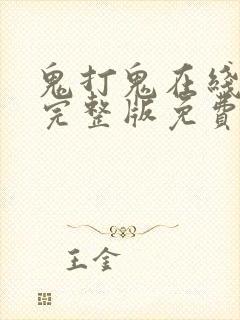 鬼打鬼在綫
完整版免費
王金